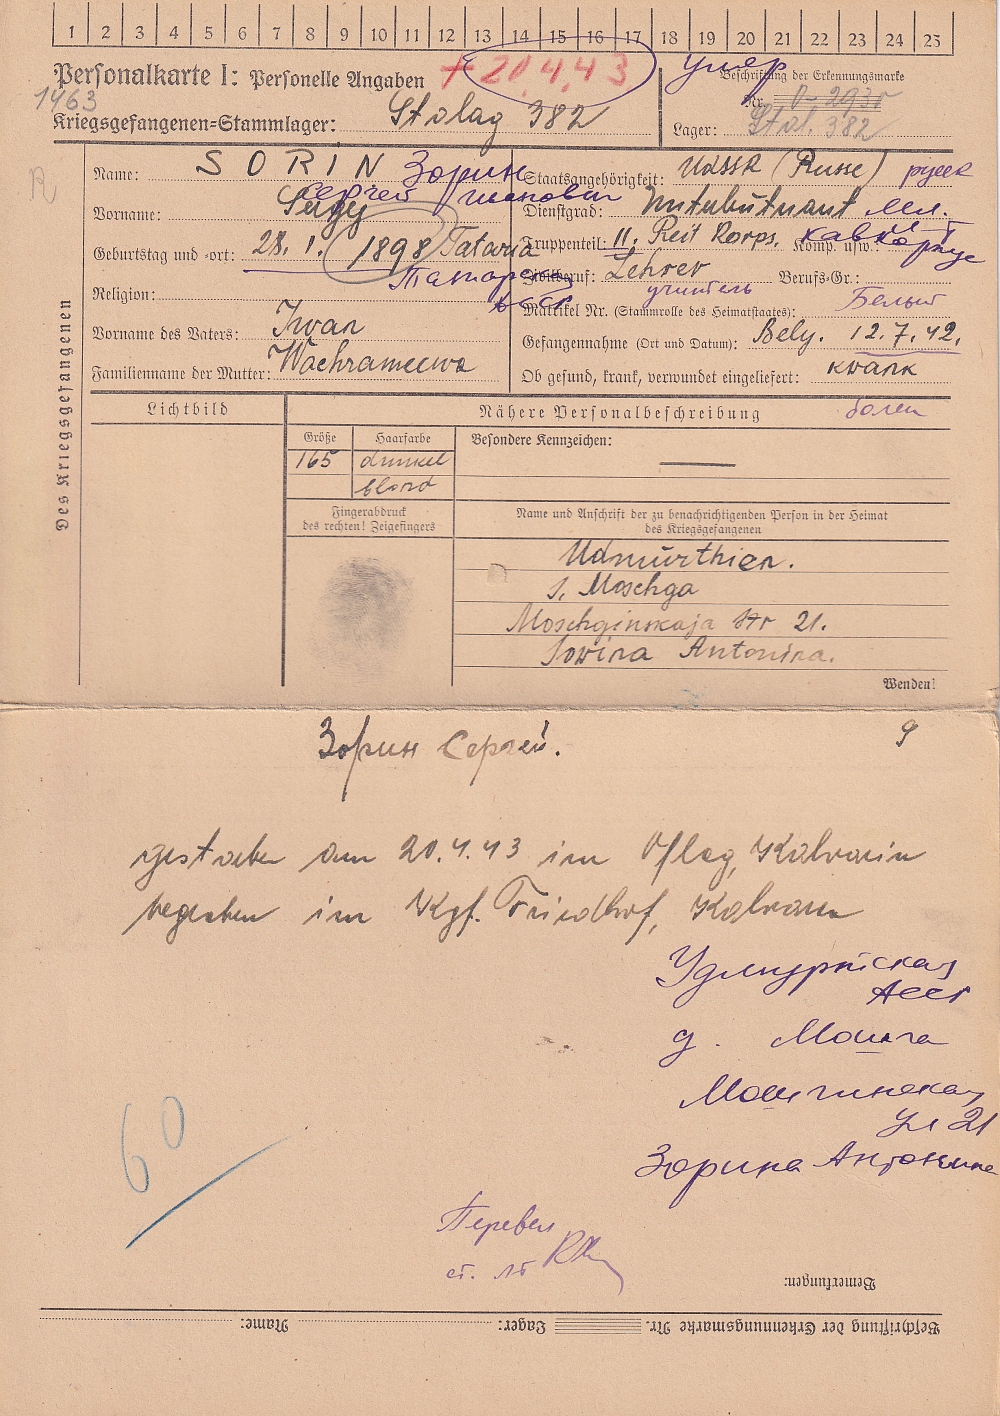 1 2 3 4 5 6 7 8 9 10 11 12 13 14 15 16 17 18 19 20 21 22 23 24 25
Personalkarte I: Personelle Angaben
† 20.4.43
умер
Beschriftung der Erkennungsmarke
1463
Nr.
Kriegsgefangenen-Stammlager: Stalag 382
Lager: Stal. 382
Des Kriegsgefangenen
Name: SORIN Зорин
Сергей Иванович
Vorname: Sergej
Geburtstag und -ort: 28. 1. 1898 Tataria
Татарская
Religion:
Vorname des Vaters: Iwan
Familienname der Mutter: Wachrameewa
Staatsangehörigkeit: UdSSR (Russe) русск
Dienstgrad: Unterleutnant мл.
Truppenteil: 11. Reit Korps. Komp. usw.: кав. корпус
Zivilberuf: Lehrer Berufs-Gr.:
учитель
Matrikel Nr. (Stammrolle des Heimatstaates):
Белый
Gefangennahme (Ort und Datum): Bely. 12.7.42.
Ob gesund, krank, verwundet eingeliefert: krank
болен
Lichtbild
Nähere Personalbeschreibung
Größe Haarfarbe Besondere Kennzeichen:
165 dunkel
blond
Fingerabdruck
des rechten! Zeigefingers
Name und Anschrift der zu benachrichtigenden Person in der Heimat
des Kriegsgefangenen
Udmurthien.
s. Moschga
Moschginskaja Str 21.
Sorina Antonina.
Wenden!
Зорин Сергей.
9
gestorben am 20.4.43 im Oflag, Kalvarin
begraben im Kgf. Friedhof, Kalvarin
Удмуртская
АССР
д. Можга
Можгинская
ул 21
Зорина Антонина
60
Перевел
ст. лт
Bemerkungen:
Beschriftung der Erkennungsmarke Nr. Lager: Name: